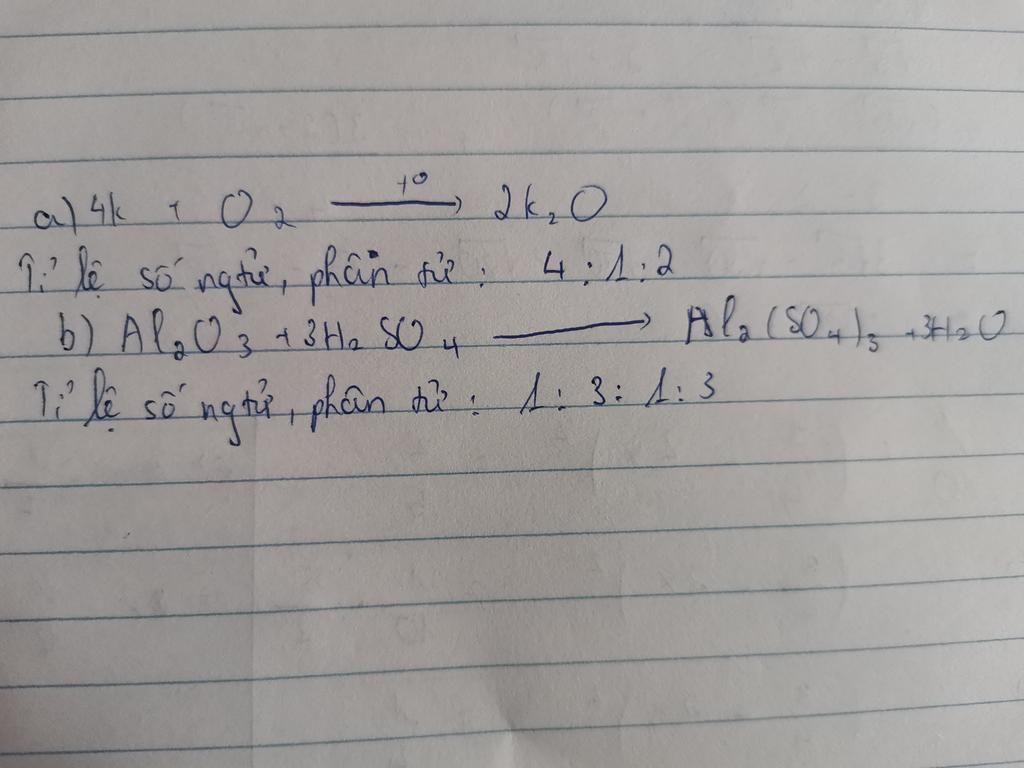 a) 4k + O₂ —t°→ 2k₂O
Tỉ lệ số ngtử, phân tử : 4 : 1 : 2
b) Al₂O₃ + 3H₂SO₄ ⟶ Al₂(SO₄)₃ + 3H₂O
Tỉ lệ số ngtử, phân tử : 1 : 3 : 1 : 3